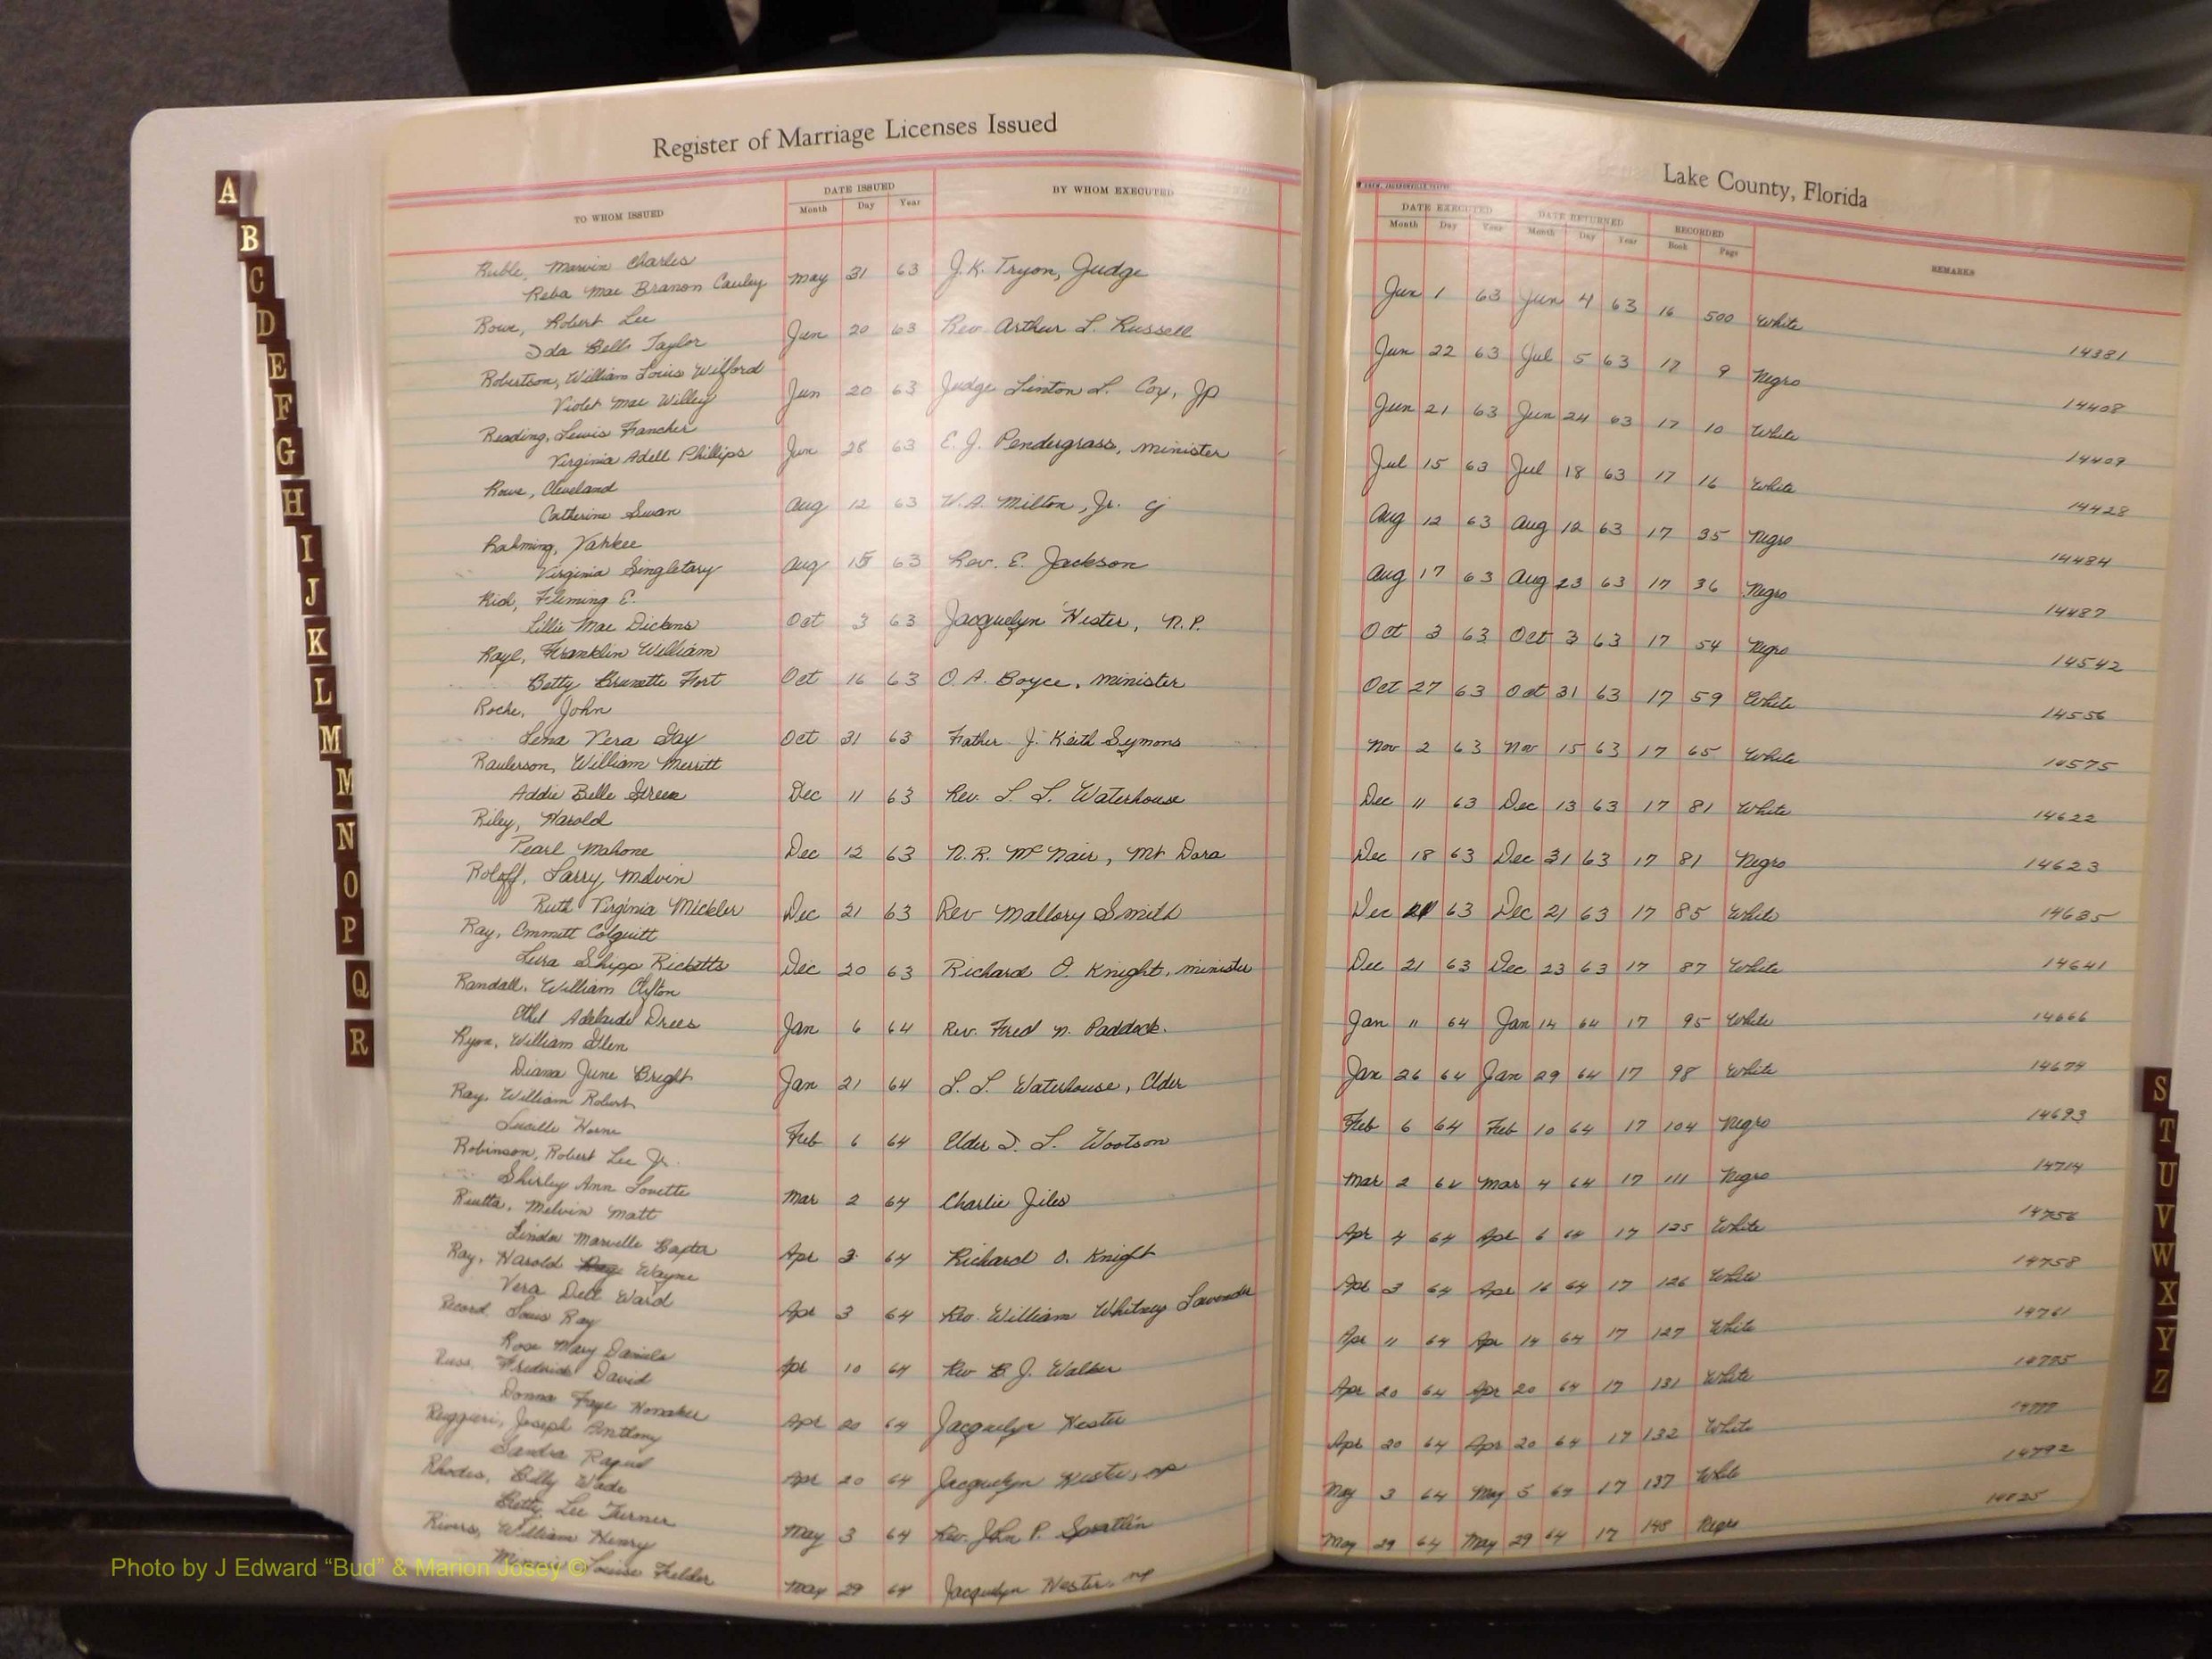 Register of Marriage Licenses Issued
Lake County, Florida
TO WHOM ISSUED
DATE ISSUED
Month Day Year
BY WHOM EXECUTED
DATE EXECUTED
Month Day Year
DATE RETURNED
Month Day Year
RECORDED
Book Page
REMARKS
Ruble, Marvin Charles
Reba Mae Branon Cauley May 31 63 J.K. Tryon, Judge Jun 1 63 Jun 4 63 16 500 White 14381
Rowe, Robert Lee
Ida Bell Taylor Jun 20 63 Rev. Arthur L. Russell Jun 22 63 Jul 5 63 17 9 Negro 14408
Robertson, William Louis Wilford
Violet Mae Willey Jun 20 63 Judge Linton L. Cox, JP Jun 21 63 Jun 24 63 17 10 White 14409
Reading, Lewis Fancher
Virginia Adell Phillips Jun 28 63 E. J. Pendergrass, minister Jul 15 63 Jul 18 63 17 16 White 14428
Rowe, Cleveland
Catherine Swan Aug 12 63 W.A. Milton, Jr. cj Aug 12 63 Aug 12 63 17 35 Negro 14484
Rahming, Yankee
Virginia Singletary Aug 15 63 Rev. E. Jackson Aug 17 63 Aug 23 63 17 36 Negro 14487
Rich, Fleming E.
Lillie Mae Dickens Oct 3 63 Jacquelyn Hester, N.P. Oct 3 63 Oct 3 63 17 54 Negro 14542
Rayl, Franklin William
Betty Brunette Fort Oct 16 63 O. A. Boyce, minister Oct 27 63 Oct 31 63 17 59 White 14556
Roche, John
Lena Vera Gay Oct 31 63 Father J. Keith Symons Nov 2 63 Nov 15 63 17 65 White 14575
Raulerson, William Merritt
Addie Belle Green Dec 11 63 Rev. L. L. Waterhouse Dec 11 63 Dec 13 63 17 81 White 14622
Riley, Harold
Pearl Mahone Dec 12 63 N.R. McNair, Mt Dora Dec 18 63 Dec 31 63 17 81 Negro 14623
Roloff, Larry Melvin
Ruth Virginia Mickler Dec 21 63 Rev Mallory Smith Dec 21 63 Dec 21 63 17 85 White 14635
Ray, Emmitt Colquitt
Lura Shipp Ricketts Dec 20 63 Richard O. Knight, minister Dec 21 63 Dec 23 63 17 87 White 14641
Randall, William Clifton
Ethel Adelaide Drees Jan 6 64 Rev. Fred N. Paddock. Jan 11 64 Jan 14 64 17 95 White 14666
Ryon, William Glen
Diana June Bright Jan 21 64 L. L. Waterhouse, Elder Jan 26 64 Jan 29 64 17 98 White 14679
Ray, William Robert
Lucille Horne Feb 6 64 Elder I. L. Wootson Feb 6 64 Feb 10 64 17 104 Negro 14693
Robinson, Robert Lee Jr.
Shirley Ann Lovette Mar 2 64 Charlie Jiles Mar 2 64 Mar 4 64 17 111 Negro 14714
Riutta, Melvin Matt
Linda Marville Baxter Apr 3 64 Richard O. Knight Apr 4 64 Apr 6 64 17 125 White 14756
Ray, Harold Ray Wayne
Vera Dell Ward Apr 3 64 Rev. William Whitney Lavender Apr 3 64 Apr 16 64 17 126 White 14758
Record, Louis Ray
Rose Mary Daniels Apr 10 64 Rev B. J. Walker Apr 11 64 Apr 14 64 17 127 White 14761
Russ, Fredrick David
Donna Faye Honaker Apr 20 64 Jacquelyn Hester Apr 20 64 Apr 20 64 17 131 White
Ruggieri, Joseph Anthony
Sandra Apr 20 64 Jacquelyn Hester, np Apr 20 64 Apr 20 64 17 132 White
Rhodes, Billy Wade
Betty Lee Turner May 3 64 Rev. John P. Spratlin May 3 64 May 5 64 17 137 White 14792
Rivers, William Henry
Louise Felder May 29 64 Jacquelyn Hester, np May 29 64 May 29 64 17 148 Negro
A
B
C
D
E
F
G
H
I
J
K
L
M
M
N
O
P
Q
R
S
T
U
V
W
X
Y
Z
Photo by J Edward “Bud” & Marion Josey ©